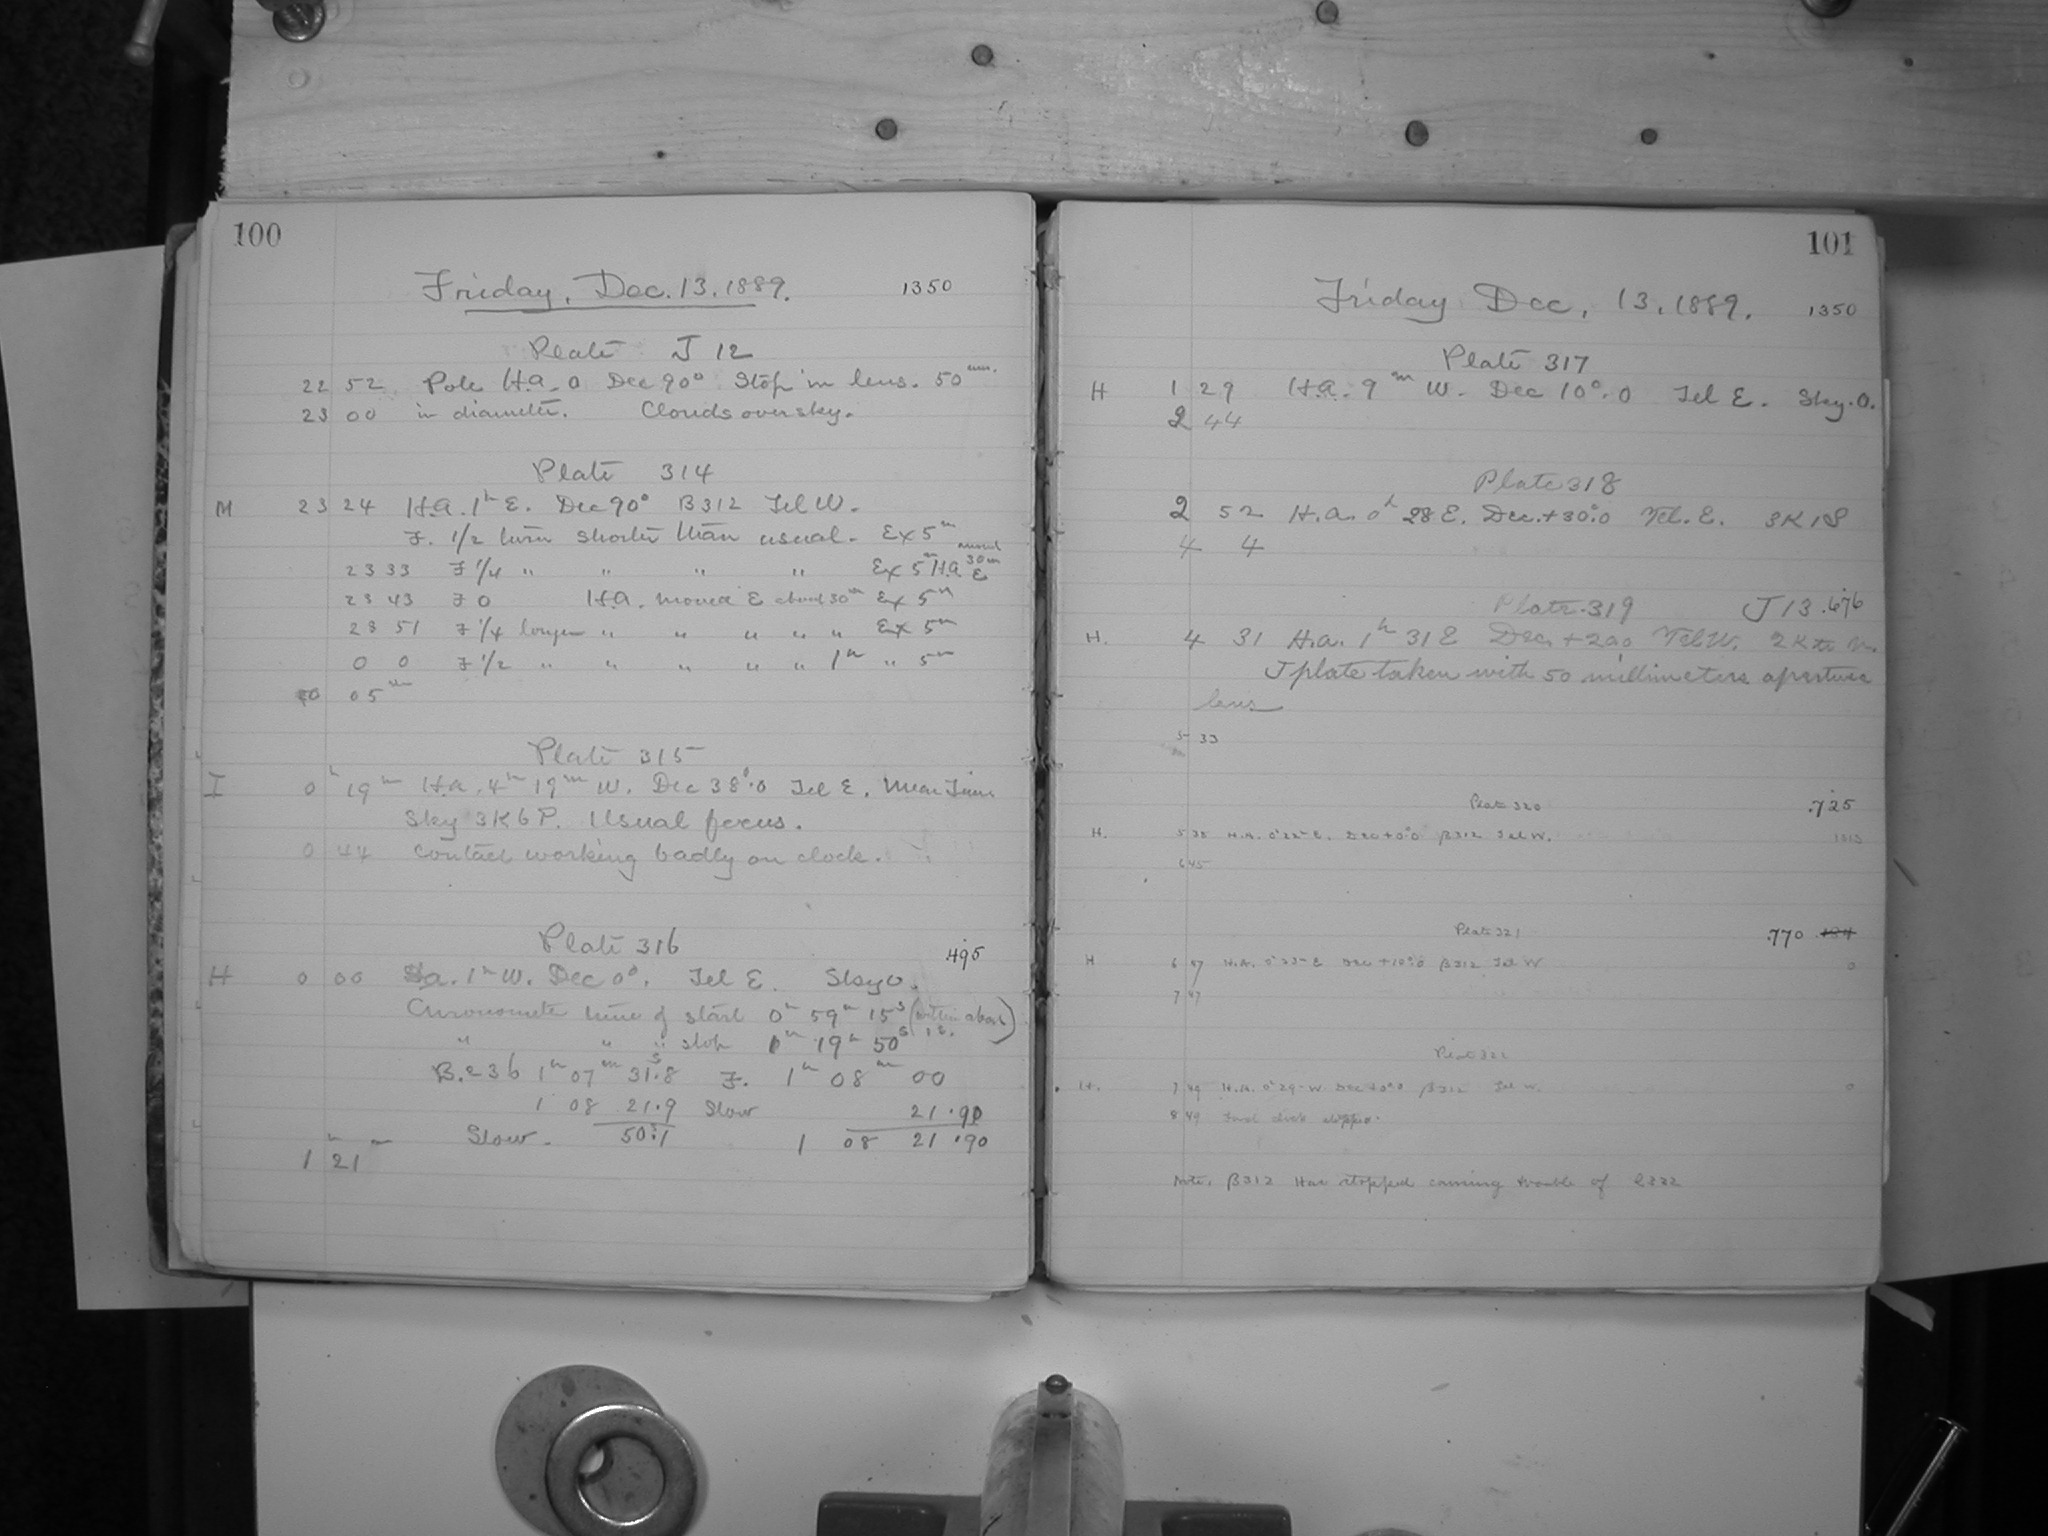 100
Friday, Dec. 13. 1889. 1350
Plate J 12
22 52 Pole H.a. 0 Dec 90° Stop in lens. 50 mm.
23 00 in diameter. Clouds over sky.
Plate 314
M 23 24 H.a. 1h E. Dec 90° B312 Tel W.
F. 1/2 turn shorter than usual. Ex 5m
23 33 F 1/4 " " " " Ex 5m H.a. moved 30m E
23 43 F 0 H.a. moved E about 30m Ex 5m
23 51 F 1/4 longer " " " " " Ex 5m
0 0 F 1/2 " " " " " 1h " 5m
0 05m
Plate 315
I 0h 19m H.a. 4h 19m W. Dec 38°.0 Tel E. Mean Time
Sky 3K6P. Usual focus.
0 44 Contact working badly on clock.
Plate 316 .495
H 0 00 Ha. 1h W. Dec 0°. Tel E. Sky 0.
Chronometer time of start 0h 59m 15s (within about 1s.)
" " " stop 1h 19m 50s
B.236 1h 07m 31.8s F. 1h 08m 00
1 08 21.9 Slow 21.90
Slow. 50.1 1 08 21.90
1h 21m
101
Friday Dec. 13. 1889. 1350
Plate 317
H 1 29 H.a. 9m W. Dec 10°.0 Tel E. Sky. 0.
2 44
Plate 318
2 52 H.a. 0h 28 E. Dec. +30°.0 Tel. E. 3K1S
4 4
Plate. 319 J 13 .676
H. 4 31 H.a. 1h 31 E Dec. +20.0 Tel W. 2K
J plate taken with 50 millimeters aperture
lens
5 33
Plate 320 .725
H. 5 38 H.A. 0h 22m E. Dec +0°.0 B312 Tel W.
6 45
Plate 321 .770
H 6 47 H.A. 0h 23m E Dec +10°.0 B312 Tel W 0
7 47
Plate 322
H. 7 49 H.A. 0h 29m W Dec B312 Tel W. 0
8 49 stopped.
Note. B312 Has stopped coming trouble of